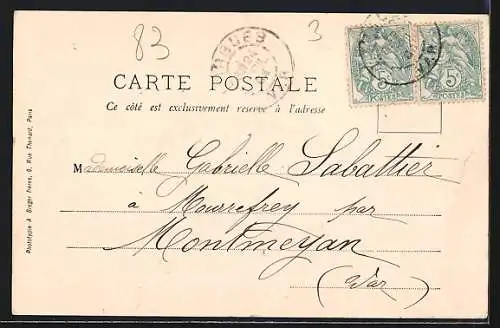 83
3
CARTE POSTALE
Ce côté est exclusivement réservé à l'adresse
5 5
POSTES POSTES
Mademoiselle Gabrielle Sabattier
à Mourrefrey par
Montmeyan
(Var)
Phototypie A. Breger Frères, 9, Rue Thénard, Paris